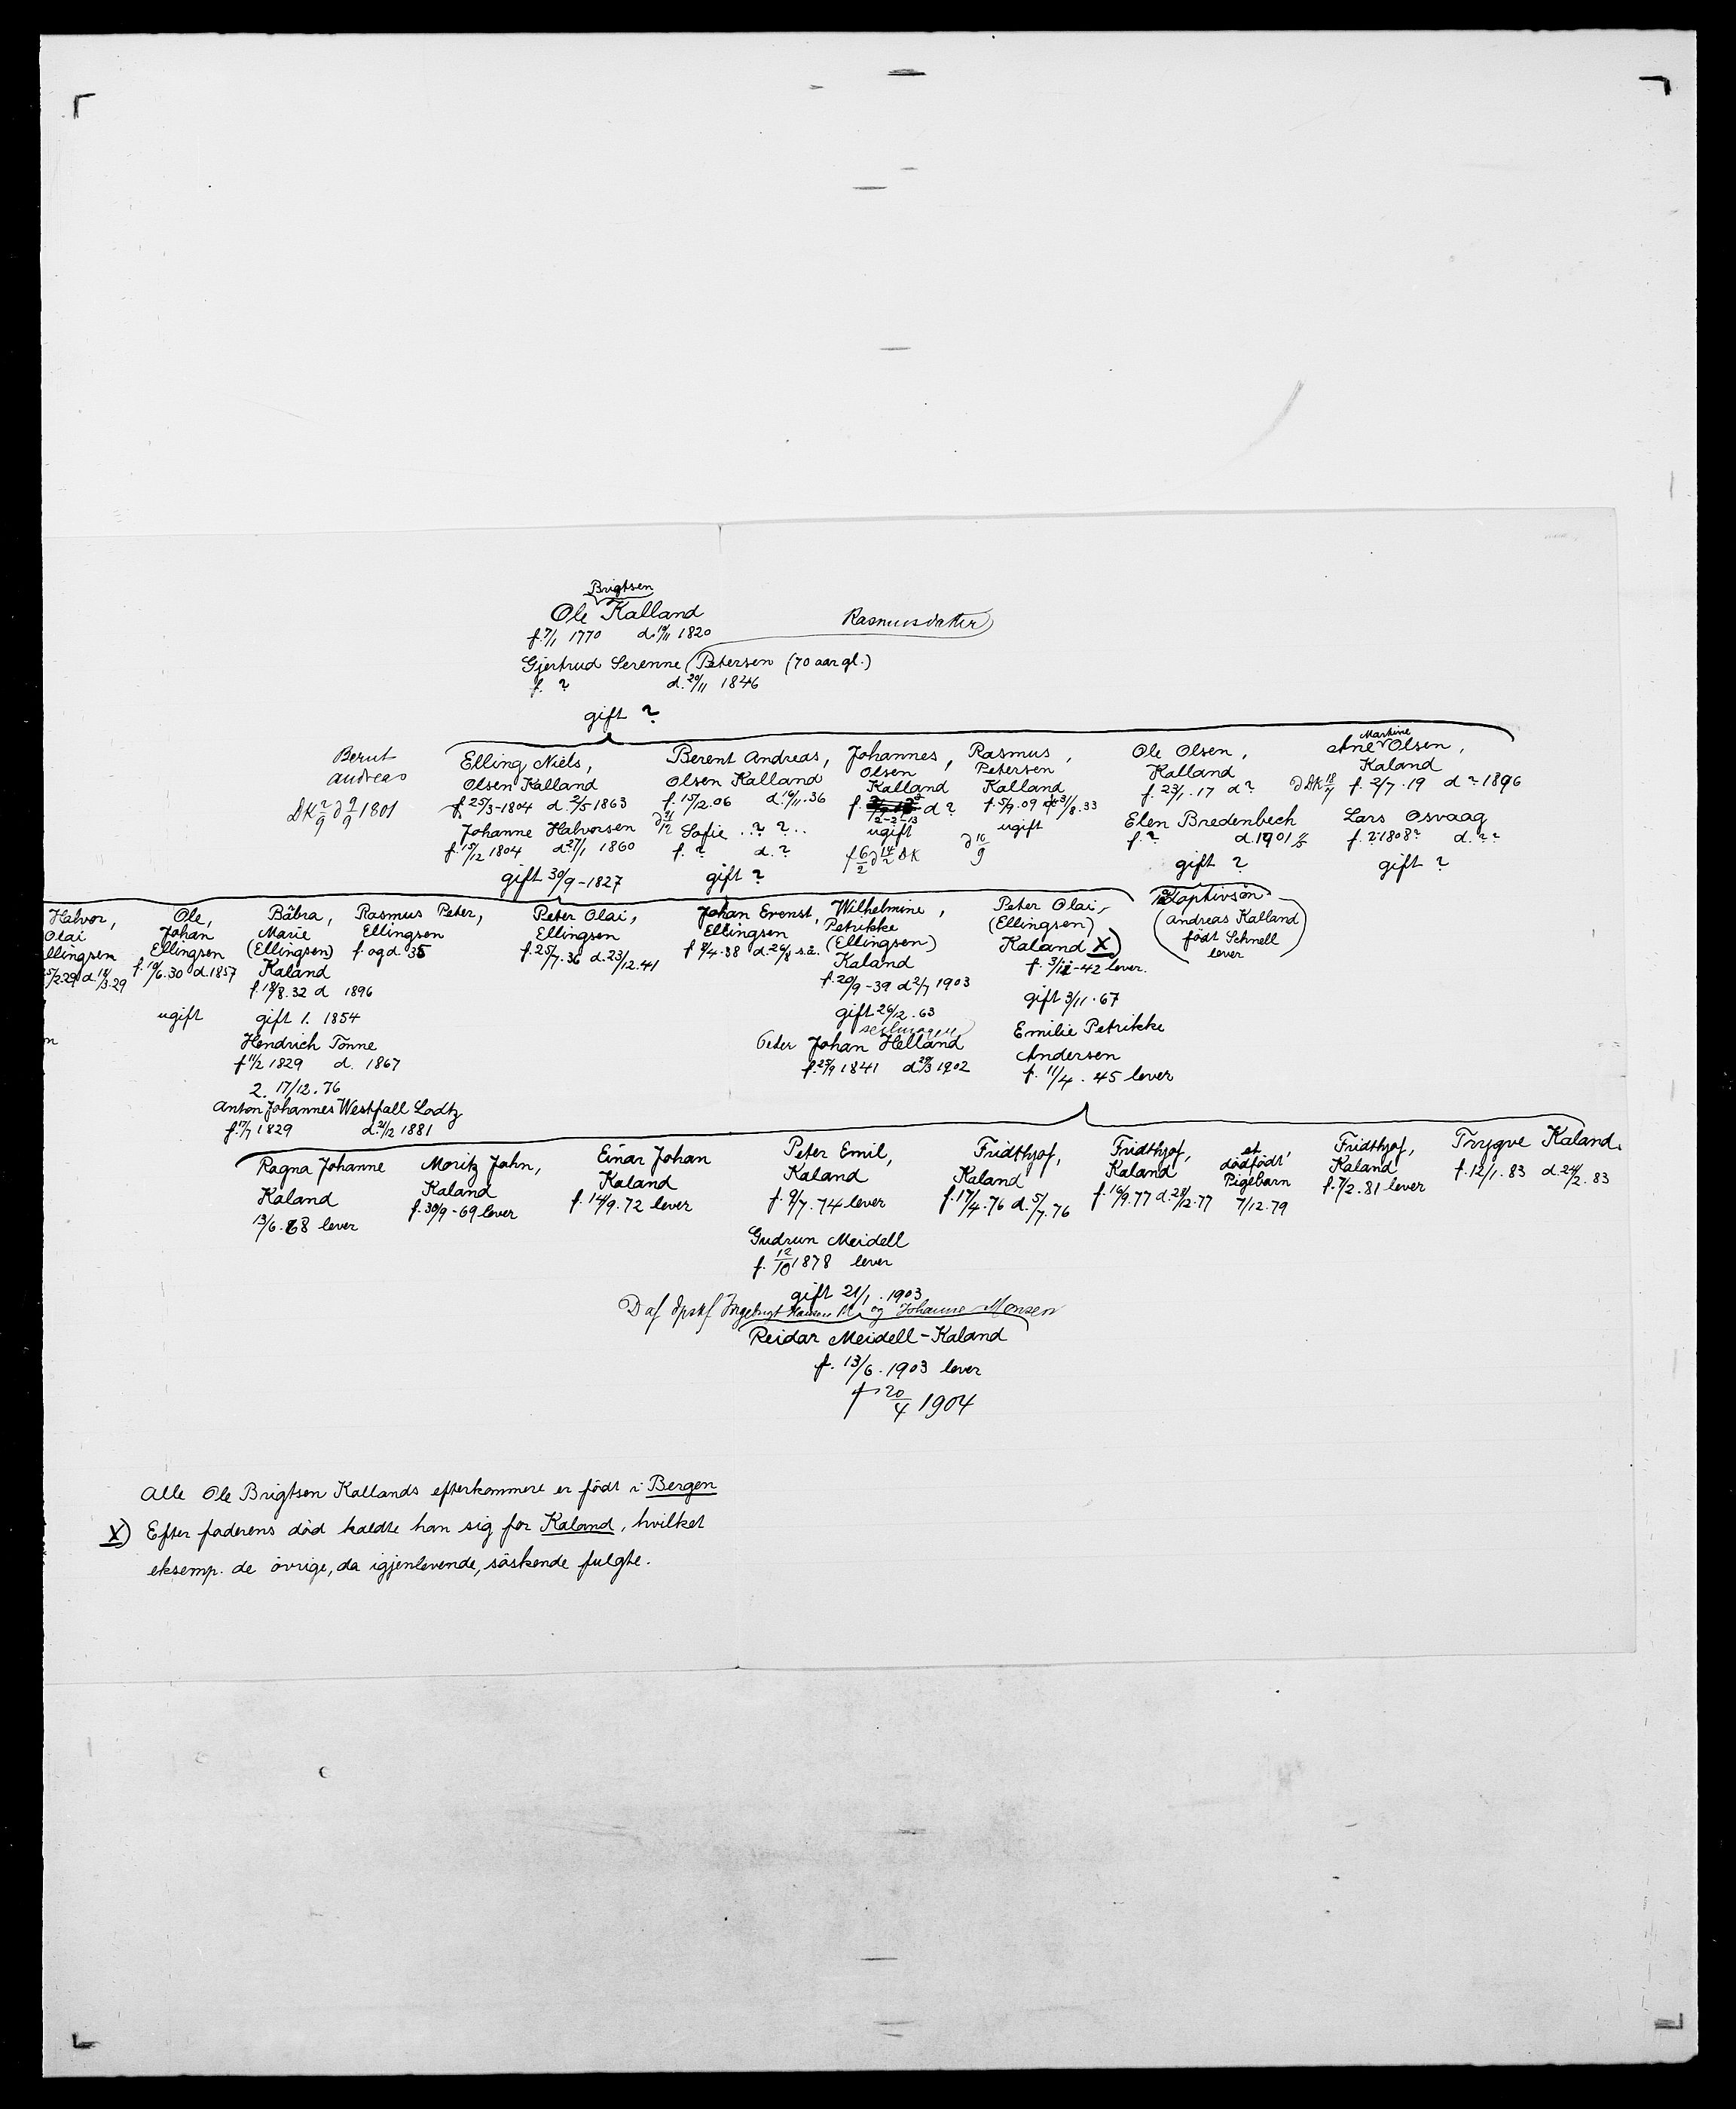 Brigtsen
Ole Kalland
f. 7/1 1770 d. 19/11 1820
Rasmusdatter
Gjertrud Serenne (Petersen (70 aar gl.)
f. ? d. 20/11 1846
gift ?
Berent
Andreas
DK 2/9 ∂ 9/9 1801
Elling Niels,
Olsen Kalland
f. 25/3-1804 d. 2/5-1863
Johanne Halvorsen
f. 15/12 1804 d. 27/1 1860
gift 30/9-1827
Berent Andreas,
Olsen Kalland
f. 15/2.06 d. 16/11.36
Sofie ..? ?..
f. ? d. ?
gift ?
Johannes,
Olsen
Kalland
f. d ?
2-2-13
ugift
f 6/2 ∂ 14/2 DK
Rasmus,
Petersen
Kalland
f. 5/9.09 d 3/8.33
ugift
∂ 10/9
Ole Olsen,
Kalland
f. 23/1.17 d ?
Elen Bredenbech
f. ? d. 1901
gift ?
Martine
Ane Olsen,
Kaland
∂ DK 18/7 f. 2/7.19 d ? 1896
Lars Osvaag
f. ? 1808? d. ??
gift ?
Halvor,
Olai
llingsen
5/2.29 d. 19/3.29
n
Ole,
Johan
Ellingsen
f. 19/6.30 d. 1857
ugift
Bäbra,
Marie
(Ellingsen)
Kaland
f. 18/8.32 d 1896
gift 1. 1854
Hendrich Tönne
f 11/2 1829 d. 1867
2. 17/12.76
Anton Johannes Westfall Lodtz
f. 17/7 1829 d. 21/2 1881
Rasmus Peter,
Ellingsen
f. og d. 35
Peter Olai,
Ellingsen
f. 25/7.36 d. 23/12.41
Johan Ernst,
Ellingsen
f 8/4.38 d. 26/8 s.a.
Wilhelmine,
Petrikke
(Ellingsen)
Kaland
f. 20/9-39 d 2/7 1903
gift 26/12.63
seilmager
Peder Johan Helland
f. 25/9 1841 d 29/3 1902
Peter Olai,
(Ellingsen)
Kaland X)
f. 3/12-42 lever.
gift 3/11.67
Emilie Petrikke
Andersen
f. 11/4.45 lever
Adoptivsön
(Andreas Kalland
födt Schnell
lever)
Ragna Johanne
Kaland
13/6.68 lever
Moritz Jahn,
Kaland
f. 30/9-69 lever
Einar Johan
Kaland
f. 14/9.72 lever
Peter Emil,
Kaland
f. 9/7.74 lever
Gudrun Meidell
f. 12/10 1878 lever
gift 21/1.1903
D af Ingebrigt Hansen M. og Johanne Monsen
Reidar Meidell-Kaland
f. 13/6.1903 lever
f 20/4 1904
Fridthjof,
Kaland
f. 17/4.76 d. 5/7.76
Fridthjof,
Kaland
f. 16/9.77 d. 28/12.77
et
dödfödt
Pigebarn
7/12.79
Fridthjof,
Kaland
f. 7/2.81 lever
Trygve Kaland.
f. 12/1.83 d. 24/2.83
Alle Ole Brigtsen Kallands efterkommere er födt i Bergen
X) Efter faderens död kaldte han sig for Kaland, hvilket
eksemp. de övrige, da igjenlevende, söskende fulgte.